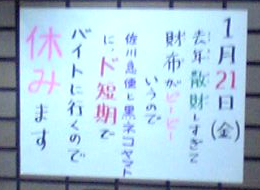 1月21日(金)
去年散財しすぎて
財布がピーピー
いうので
佐川急便と黒ネコヤマト
に、ド短期で
バイトに行くので
休みます